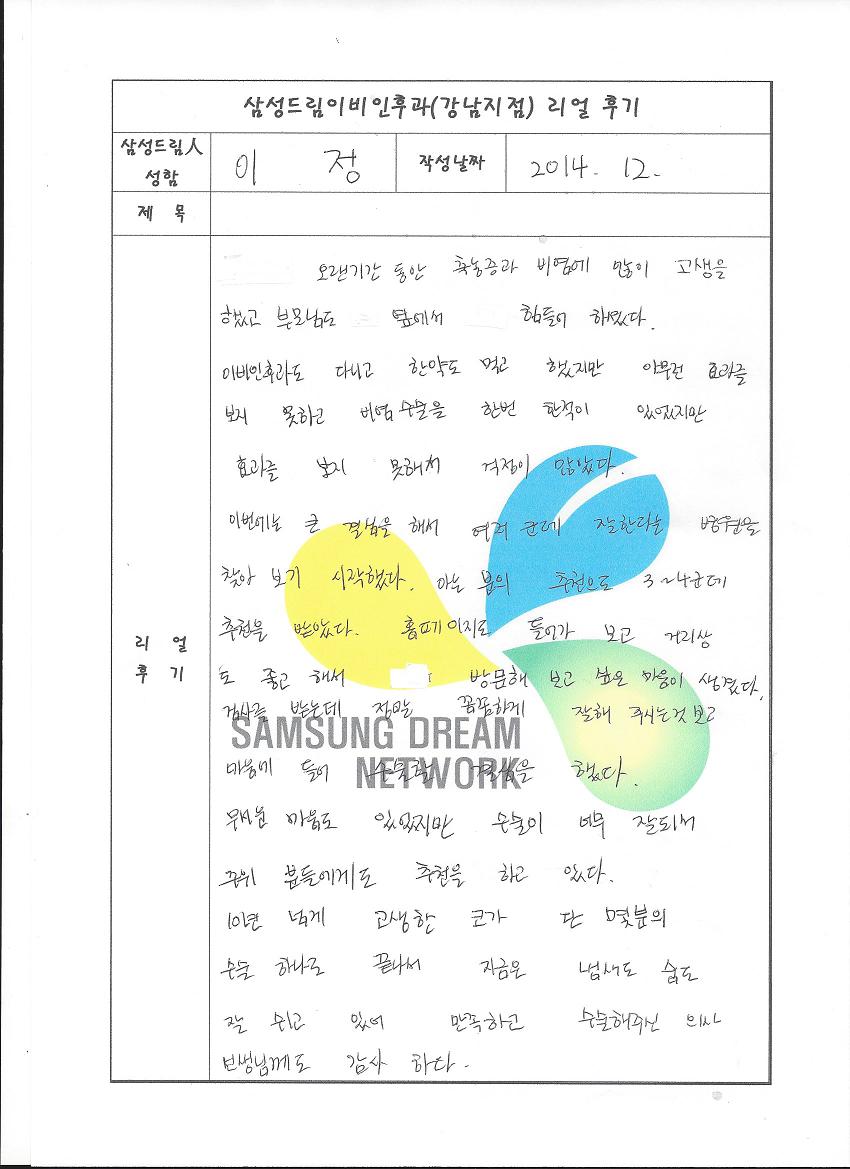 삼성드림이비인후과(강남지점) 리얼 후기
삼성드림人 성함
이 정
작성날짜
2014. 12.
제 목
리 얼
후 기
오랜기간 동안 축농증과 비염에 많이 고생을
했고 부모님도 옆에서 힘들어 하셨다.
이비인후과도 다니고 한약도 먹고 했지만 아무런 효과를
보지 못하고 비염수술을 한번 한적이 있었지만
효과를 보지 못해서 걱정이 많았다.
이번에는 큰 결심을 해서 여러 군데 잘한다는 병원을
찾아 보기 시작했다. 아는 분의 추천으로 3~4군데
추천을 받았다. 홈페이지도 들어가 보고 거리상
도 좋고 해서 방문해 보고 싶은 마음이 생겼다.
검사를 받는데 정말 꼼꼼하게 잘해 주시는것 보고
SAMSUNG DREAM
마음에 들어 수술할 결심을 했다.
NETWORK
무서운 마음도 있었지만 수술이 너무 잘되서
주위 분들에게도 추천을 하고 있다.
10년 넘게 고생한 코가 단 몇분의
수술 하나로 끝나서 지금은 냄새도 숨도
잘 쉬고 있어 만족하고 수술해주신 의사
선생님께도 감사 하다.